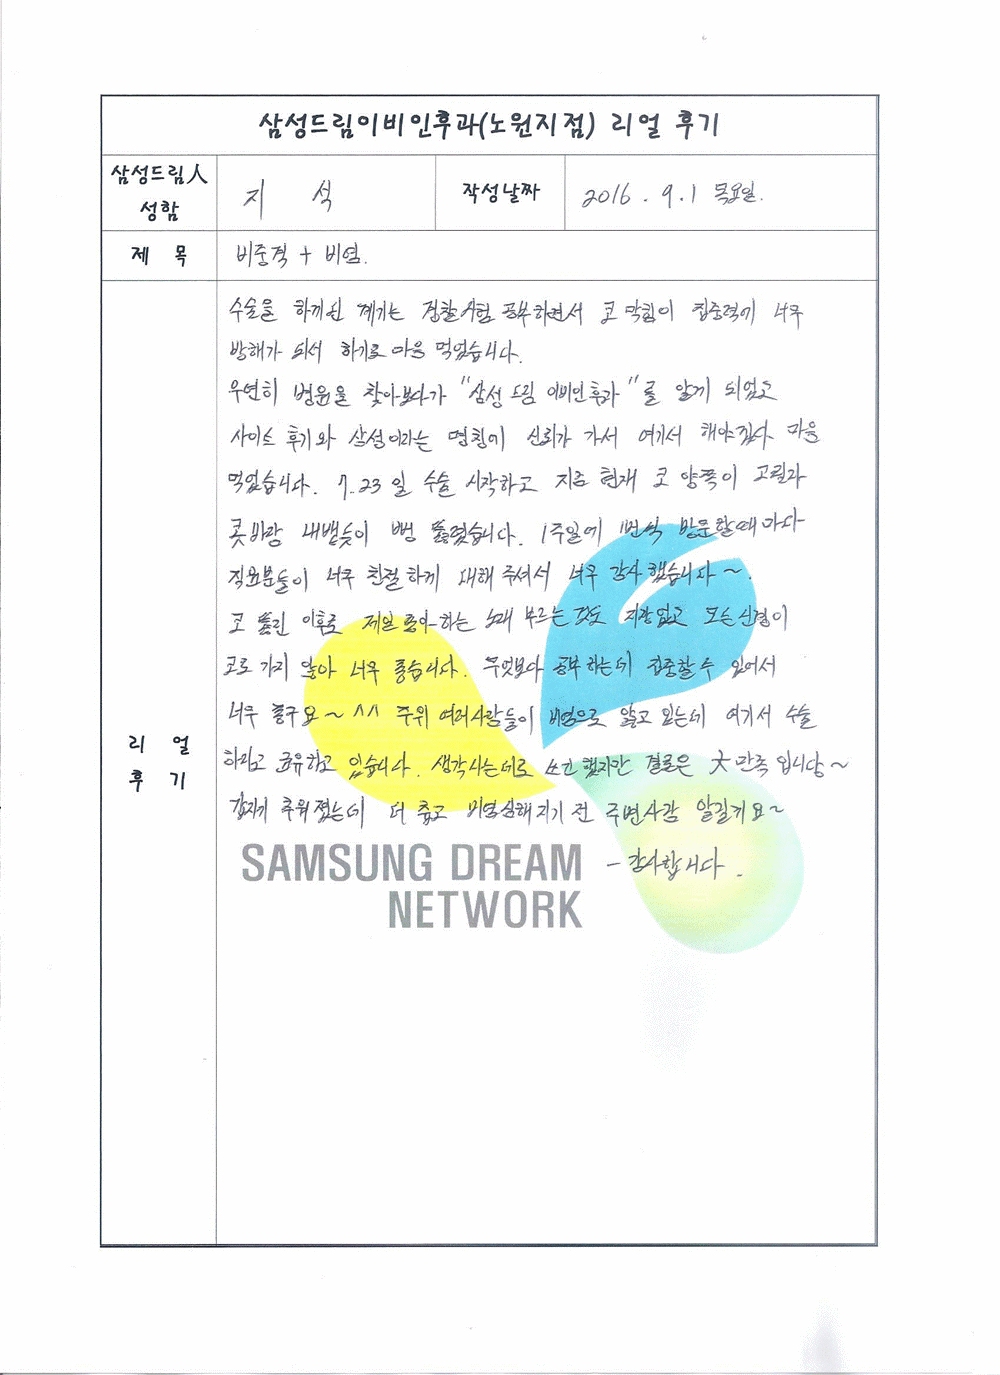 삼성드림이비인후과(노원지점) 리얼 후기
삼성드림人
성함
지 석
작성날짜
2016. 9. 1 목요일.
제 목
비중격 + 비염.
리 얼
후 기
수술을 하게된 계기는 경찰시험 공부하면서 코 막힘이 집중력에 너무
방해가 되서 하기로 마음 먹었습니다.
우연히 병원을 찾아보다가 "삼성드림 이비인후과"를 알게 되었고
사이트 후기와 삼성이라는 명칭에 신뢰가 가서 여기서 해야겠다 마음
먹었습니다. 7.23일 수술 시작하고 지금 현재 코 양쪽이 고릴라
콧바람 내뱉듯이 뻥 뚫렸습니다. 1주일에 1번씩 방문할때마다
직원분들이 너무 친절하게 대해 주셔서 너무 감사했습니다~.
코 뚫린 이후로 제일 좋아하는 노래 부르는 것도 지장없고 모든신경이
코로 가지 않아 너무 좋습니다. 무엇보다 공부하는데 집중할수 있어서
너무 좋구요~ ^^ 주위 여러사람들이 비염으로 앓고 있는데 여기서 수술
하라고 권유하고 있습니다. 생각나는데로 쓰긴 했지만 결론은 大만족입니당~
갑자기 추워졌는데 더 춥고 비염심해지기 전 주변사람 알릴게요~
- 감사합니다.
SAMSUNG DREAM
NETWORK